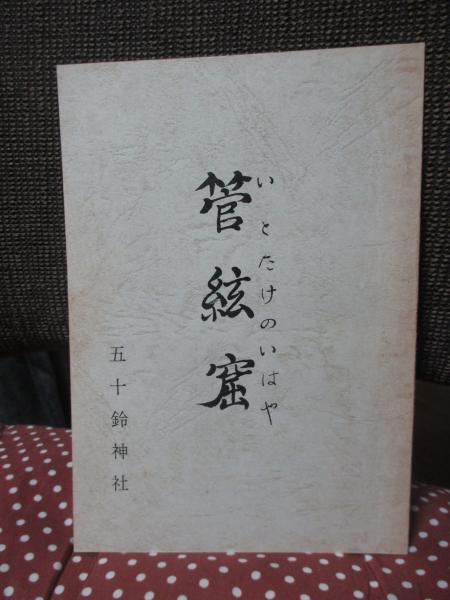 いとたけのいはや
管絃窟
五十鈴神社